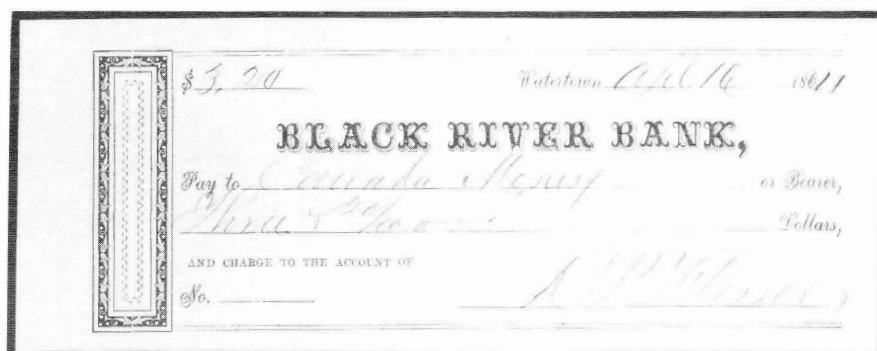 $3.20 Watertown Apl 16 1861
BLACK RIVER BANK,
Pay to Canada Money or Bearer,
Three & 20/100 Dollars,
AND CHARGE TO THE ACCOUNT OF
No.